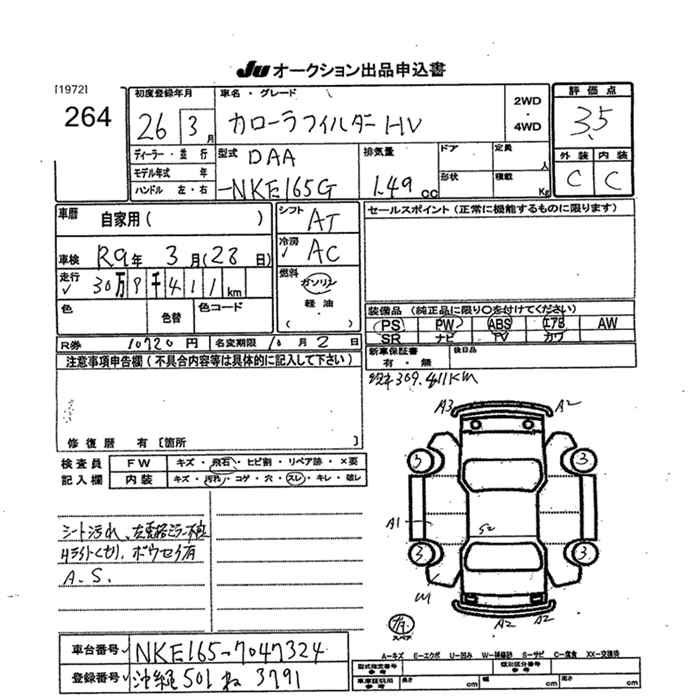 Ju オークション出品申込書
[1972]
264
初度登録年月
26 3月
車名・グレード
カローラフィルダー HV
2WD
・
4WD
評価点
3.5
外装 内装
C C
ディーラー・並行
モデル年式 年
ハンドル 左・右
型式 DAA
-NKE165G
排気量
1.49 cc
ドア
形状
定員
人
積載
Kg
車歴 自家用( )
車検 R9年 3月(28日)
走行
km
シフト AT
冷房 AC
燃料 ガソリン
軽油
( )
セールスポイント (正常に機能するものに限ります)
色 色替 色コード
装備品 (純正品に限り○を付けてください)
PS PW ABS エアB AW
SR ナビ TV カワ
R券 10720円 名変期限 月 2日
新車保証書
有・無
後日品
注意事項申告欄 (不具合内容等は具体的に記入して下さい)
309,411KM
修復歴 有 [箇所 ]
検査員
記入欄
FW キズ・飛石・ヒビ割・リペア跡・×要
内装 キズ・汚れ・コゲ・穴・スレ・キレ・破レ
シート汚れ、
A.S.
A3 A2
3 3
A1
S2
3 3
W
A2 A2
スペア
A-キズ E-エクボ U-凹み W-補修跡 S-サビ C-腐食 XX-交換済
車台番号 NKE165-7047324
登録番号 沖縄 501 ね 3791
型式指定番号
参考
類別区分番号
参考
車車証記載
参考
長さ cm
幅 cm
高さ cm